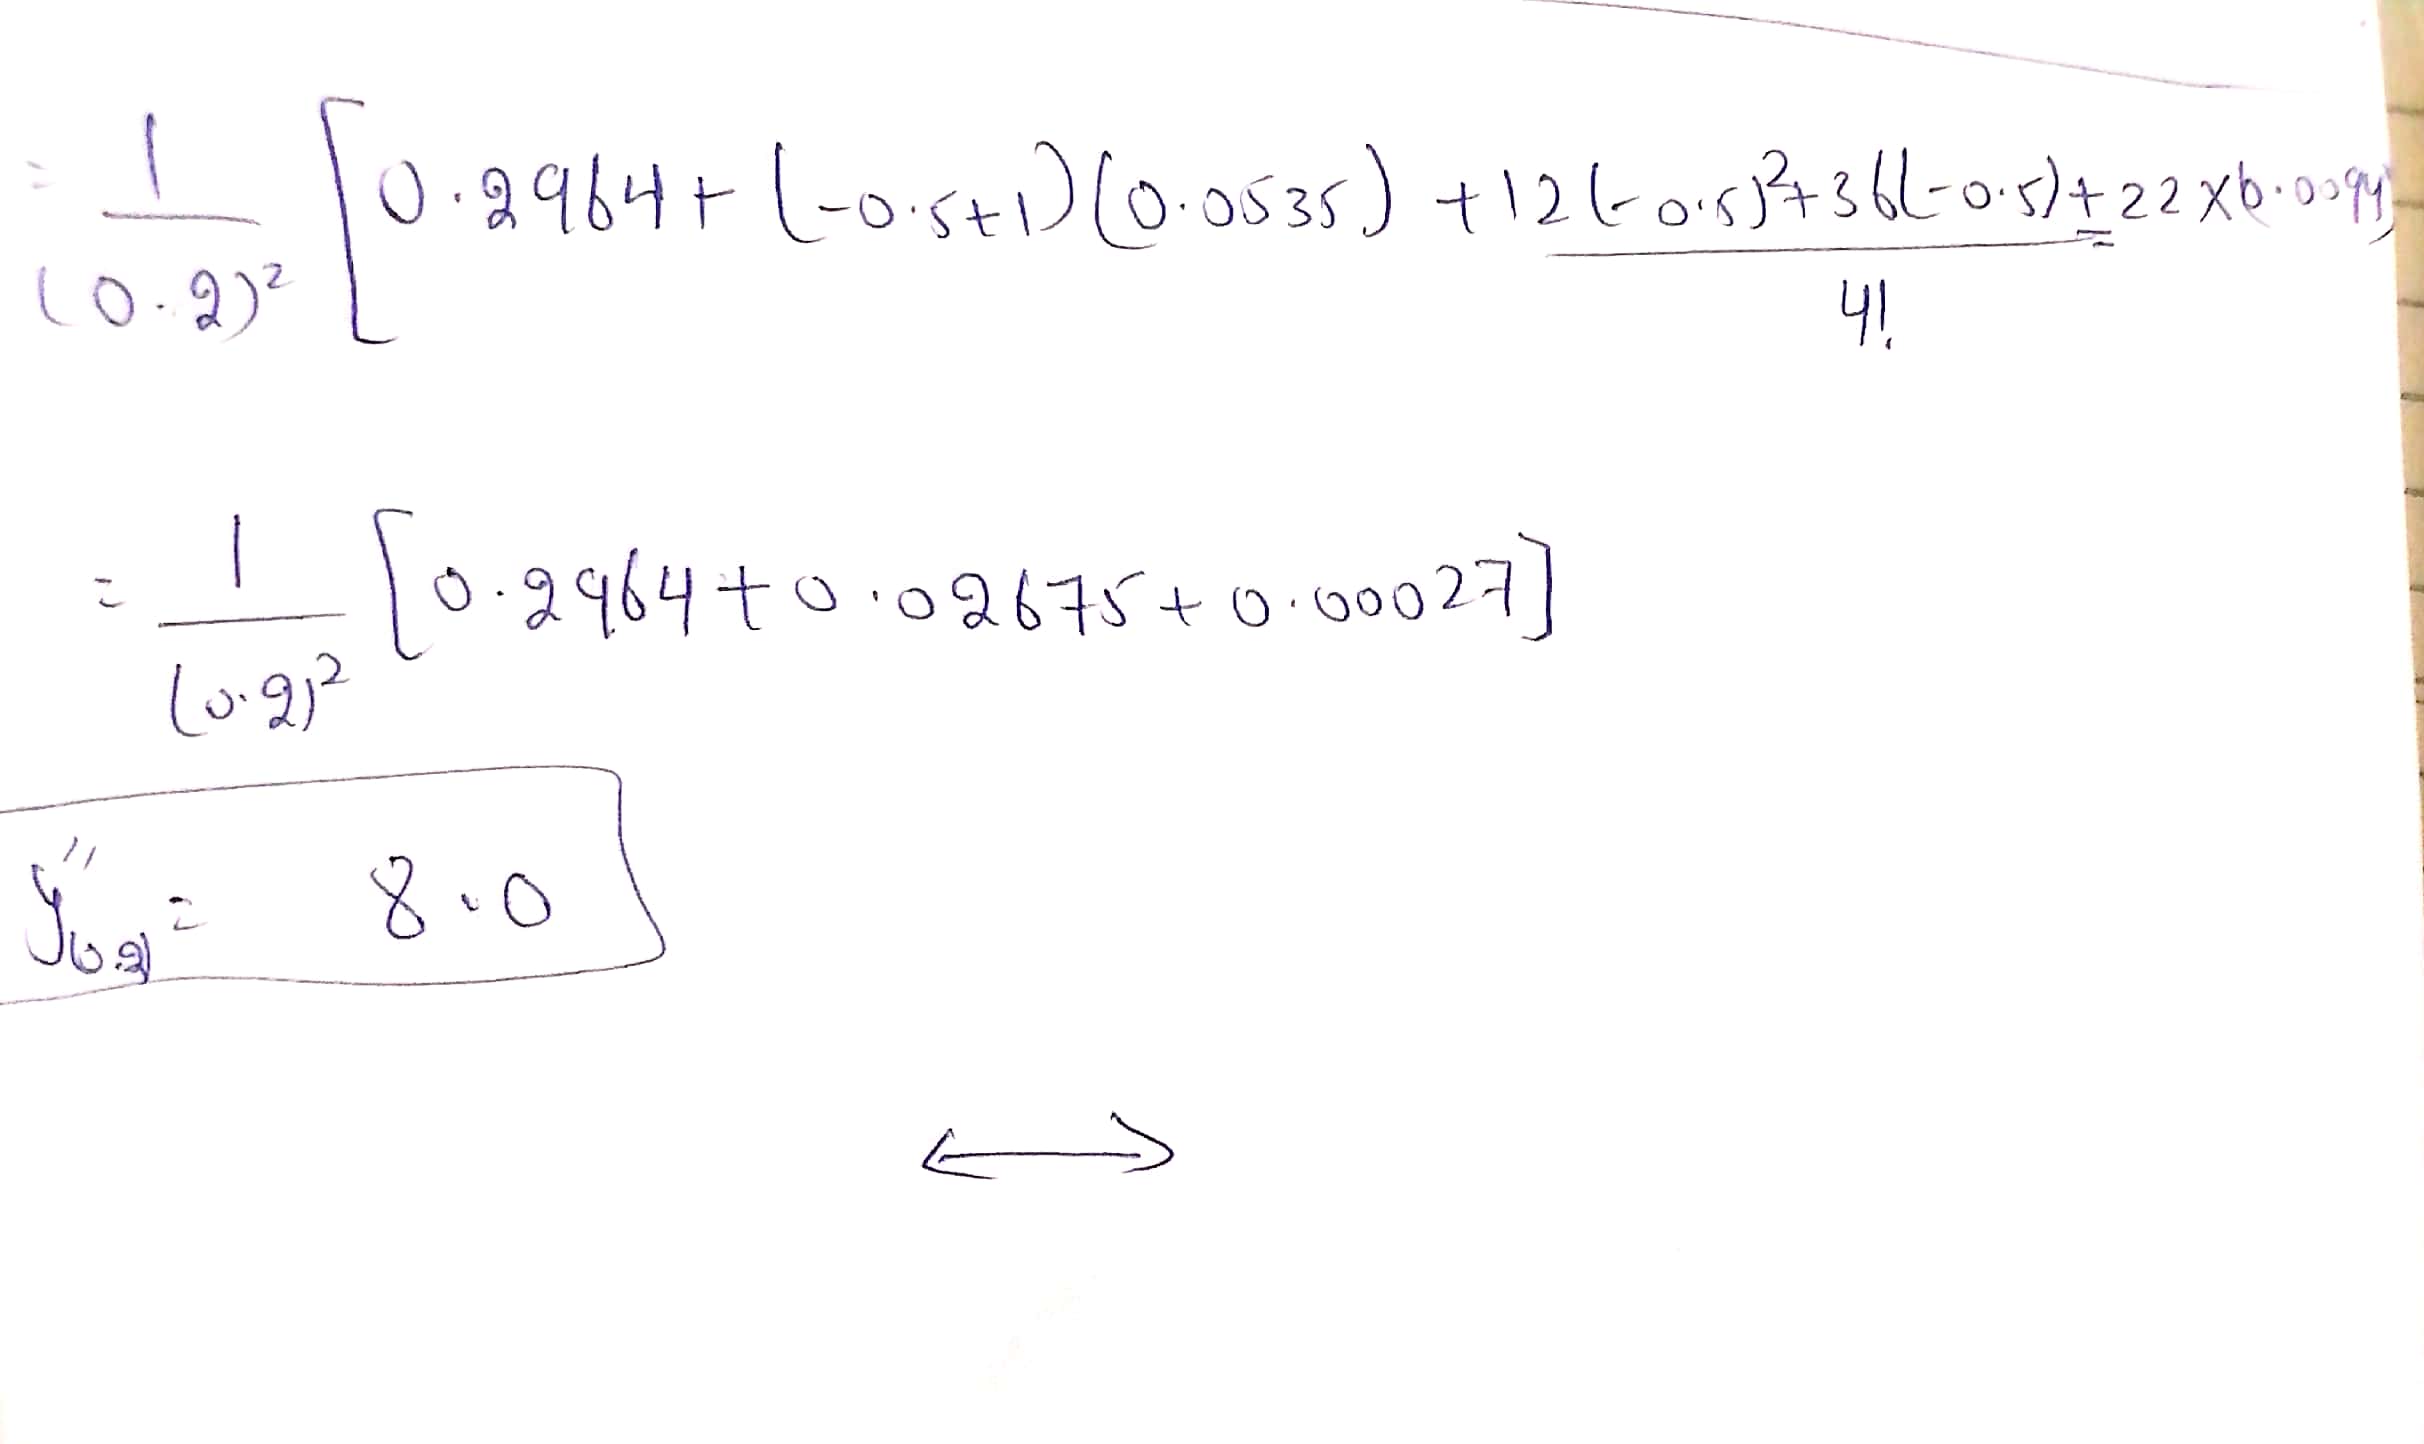 = 1/(0.2)² [0.2964 + (-0.5+1)(0.0535) + 12(-0.5)²+36(-0.5)+22/4! × 0.0094)
= 1/(0.2)² [0.2964 + 0.02675 + 0.00027]
y''(0.2) = 8.0